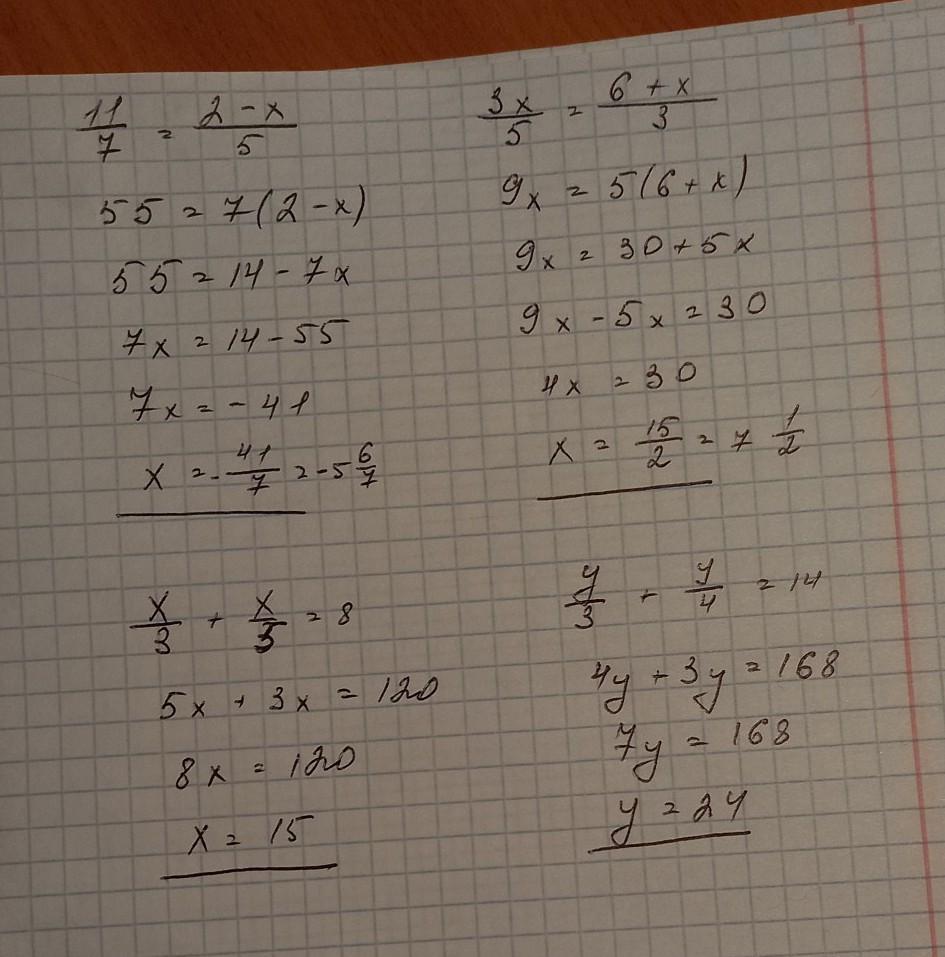 11/7 = (2 - x)/5
55 = 7(2 - x)
55 = 14 - 7x
7x = 14 - 55
7x = - 41
x = - 41/7 = - 5 6/7
3x/5 = (6 + x)/3
9x = 5(6 + x)
9x = 30 + 5x
9x - 5x = 30
4x = 30
x = 15/2 = 7 1/2
x/3 + x/5 = 8
5x + 3x = 120
8x = 120
x = 15
y/3 + y/4 = 14
4y + 3y = 168
7y = 168
y = 24